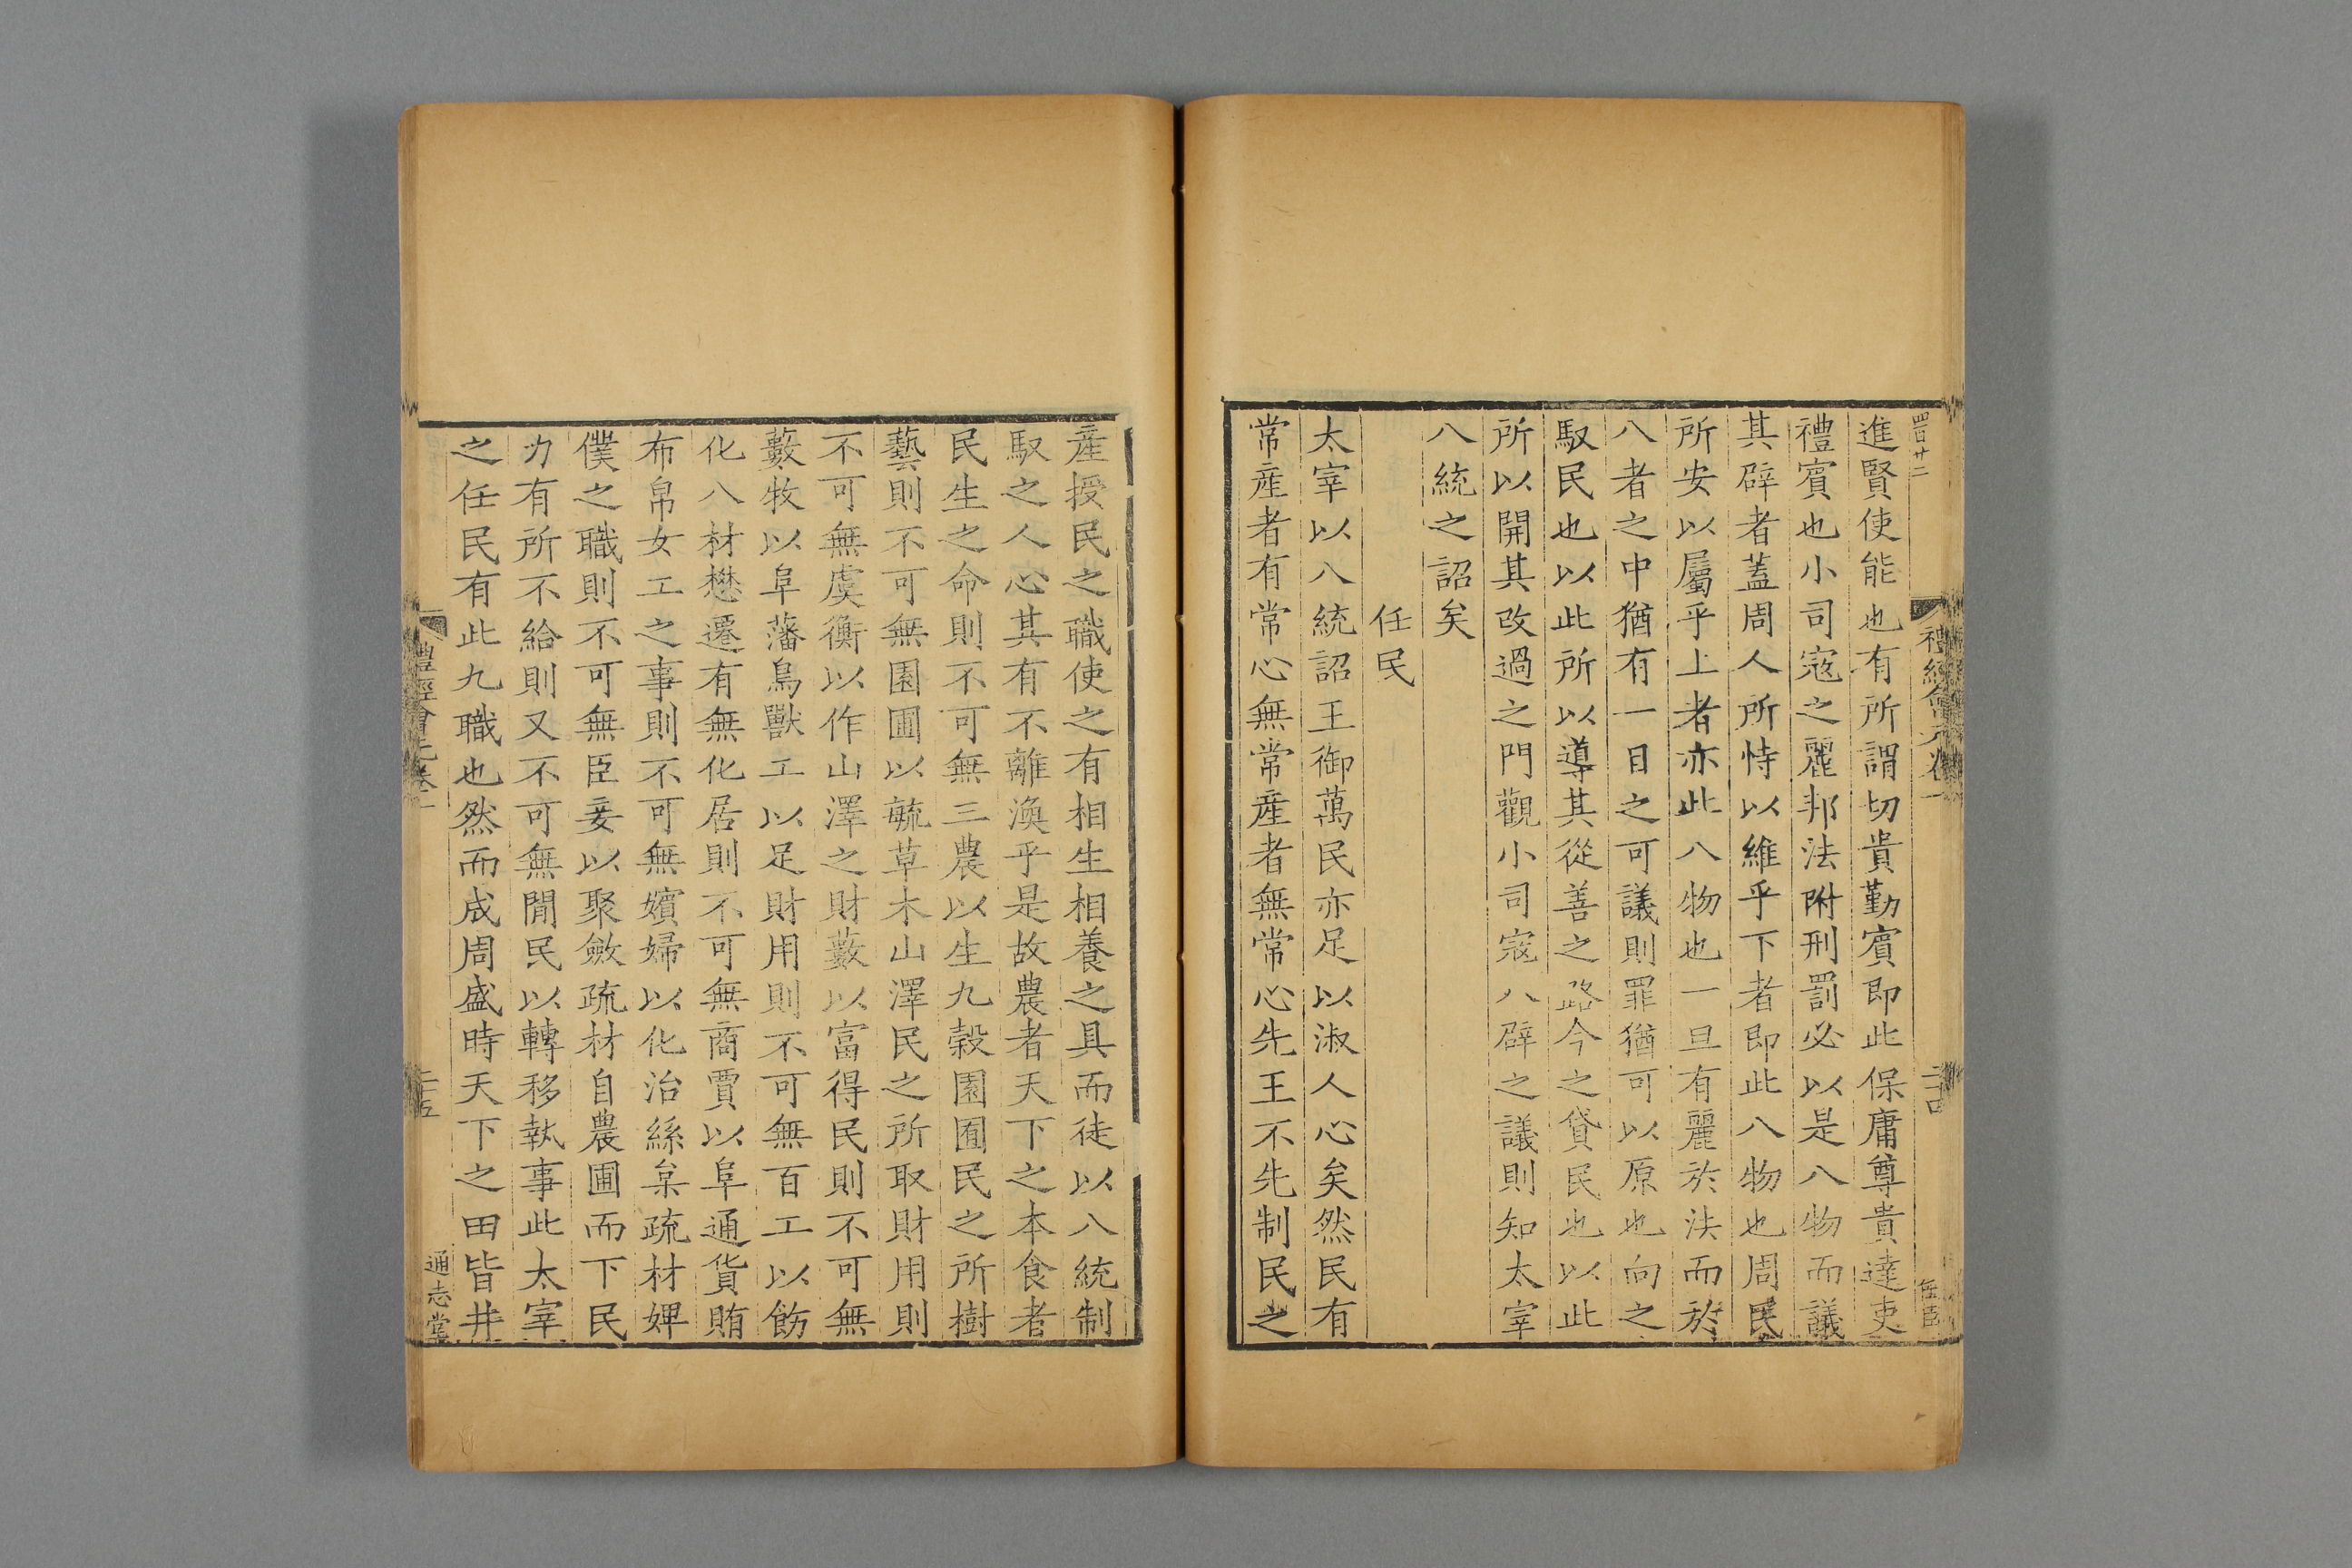 四百廿二
禮經會元卷一
二十四
進賢使能也有所謂切貴勤賓即此保庸尊貴達吏
禮賓也小司寇之麗邦法附刑罰必以是八物而議
其辟者蓋周人所恃以維乎下者即此八物也周民
所安以屬乎上者亦此八物也一旦有麗於法而於
八者之中猶有一日之可議則罪猶可以原也向之
馭民也以此所以導其從善之路今之貸民也以此
所以開其改過之門觀小司寇八辟之議則知太宰
八統之詔矣
任民
太宰以八統詔王御萬民亦足以淑人心矣然民有
常産者有常心無常産者無常心先王不先制民之
産授民之職使之有相生相養之具而徒以八統制
馭之人心其有不離渙乎是故農者天下之本食者
民生之命則不可無三農以生九穀園囿民之所樹
藝則不可無園圃以毓草木山澤民之所取財用則
不可無虞衡以作山澤之財藪以富得民則不可無
藪牧以阜藩鳥獸工以足財用則不可無百工以飭
化八材懋遷有無化居則不可無商賈以阜通貨賄
布帛女工之事則不可無嬪婦以化治絲枲疏材婢
僕之職則不可無臣妾以聚斂疏材自農圃而下民
力有所不給則又不可無閒民以轉移執事此太宰
之任民有此九職也然而成周盛時天下之田皆井
禮經會元卷一
二十五
通志堂